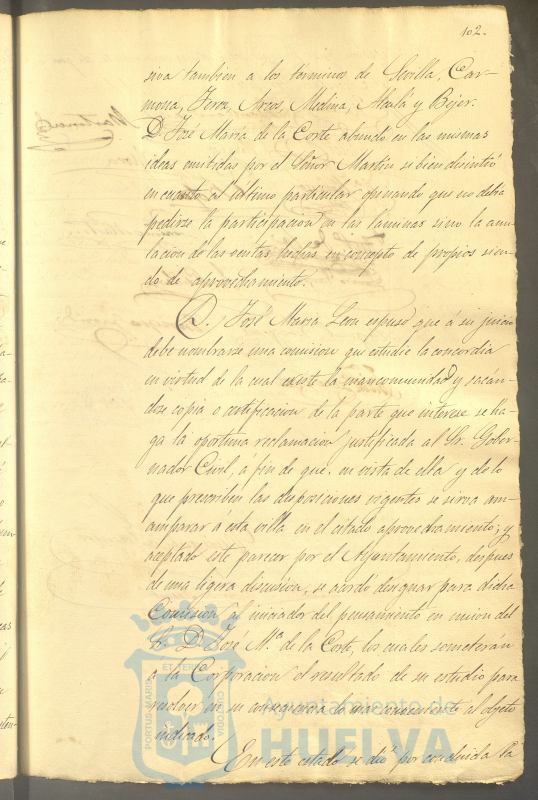 102.
siva tambien a los términos de Sevilla, Car-
mona, Jerez, Arcos, Medina, Alcalá y Bejer.
D. José Maria de la Corte abundó en las mismas
ideas emitidas por el Señor Martin si bien disintió
en cuanto al último particular opinando que no debia
pedirse la participacion en las laminas sino la anu-
lacion de las ventas hechas en concepto de propios sien-
do de aprovechamiento.
D. José Maria expuso que á su juicio
debe nombrarse una comision que estudie la concordia
en virtud de la cual existe la mancomunidad y sacán-
dose copia o certificacion de la parte que interese se ha-
ga la oportuna reclamacion justificada al Sr. Gober-
nador Civil, á fin de que, en vista de ella y de lo
que prescriben las disposiciones vigentes se sirva am-
amparar á esta villa en el citado aprovechamiento; y
aceptado este parecer por el Ayuntamiento, despues
de una ligera discusion, se acordó designar para dicha
Comision al iniciador del pensamiento en union del
Sr. D. José Mª. de la Corte, los cuales someterán
a la Corporacion el resultado de su estudio para
resolver en su consecuencia lo mas conveniente al objeto
indicado.
En este estado se dió por concluida la
PORTUS MARIS ET TERRAE CUSTODIA
Ayuntamiento de
HUELVA